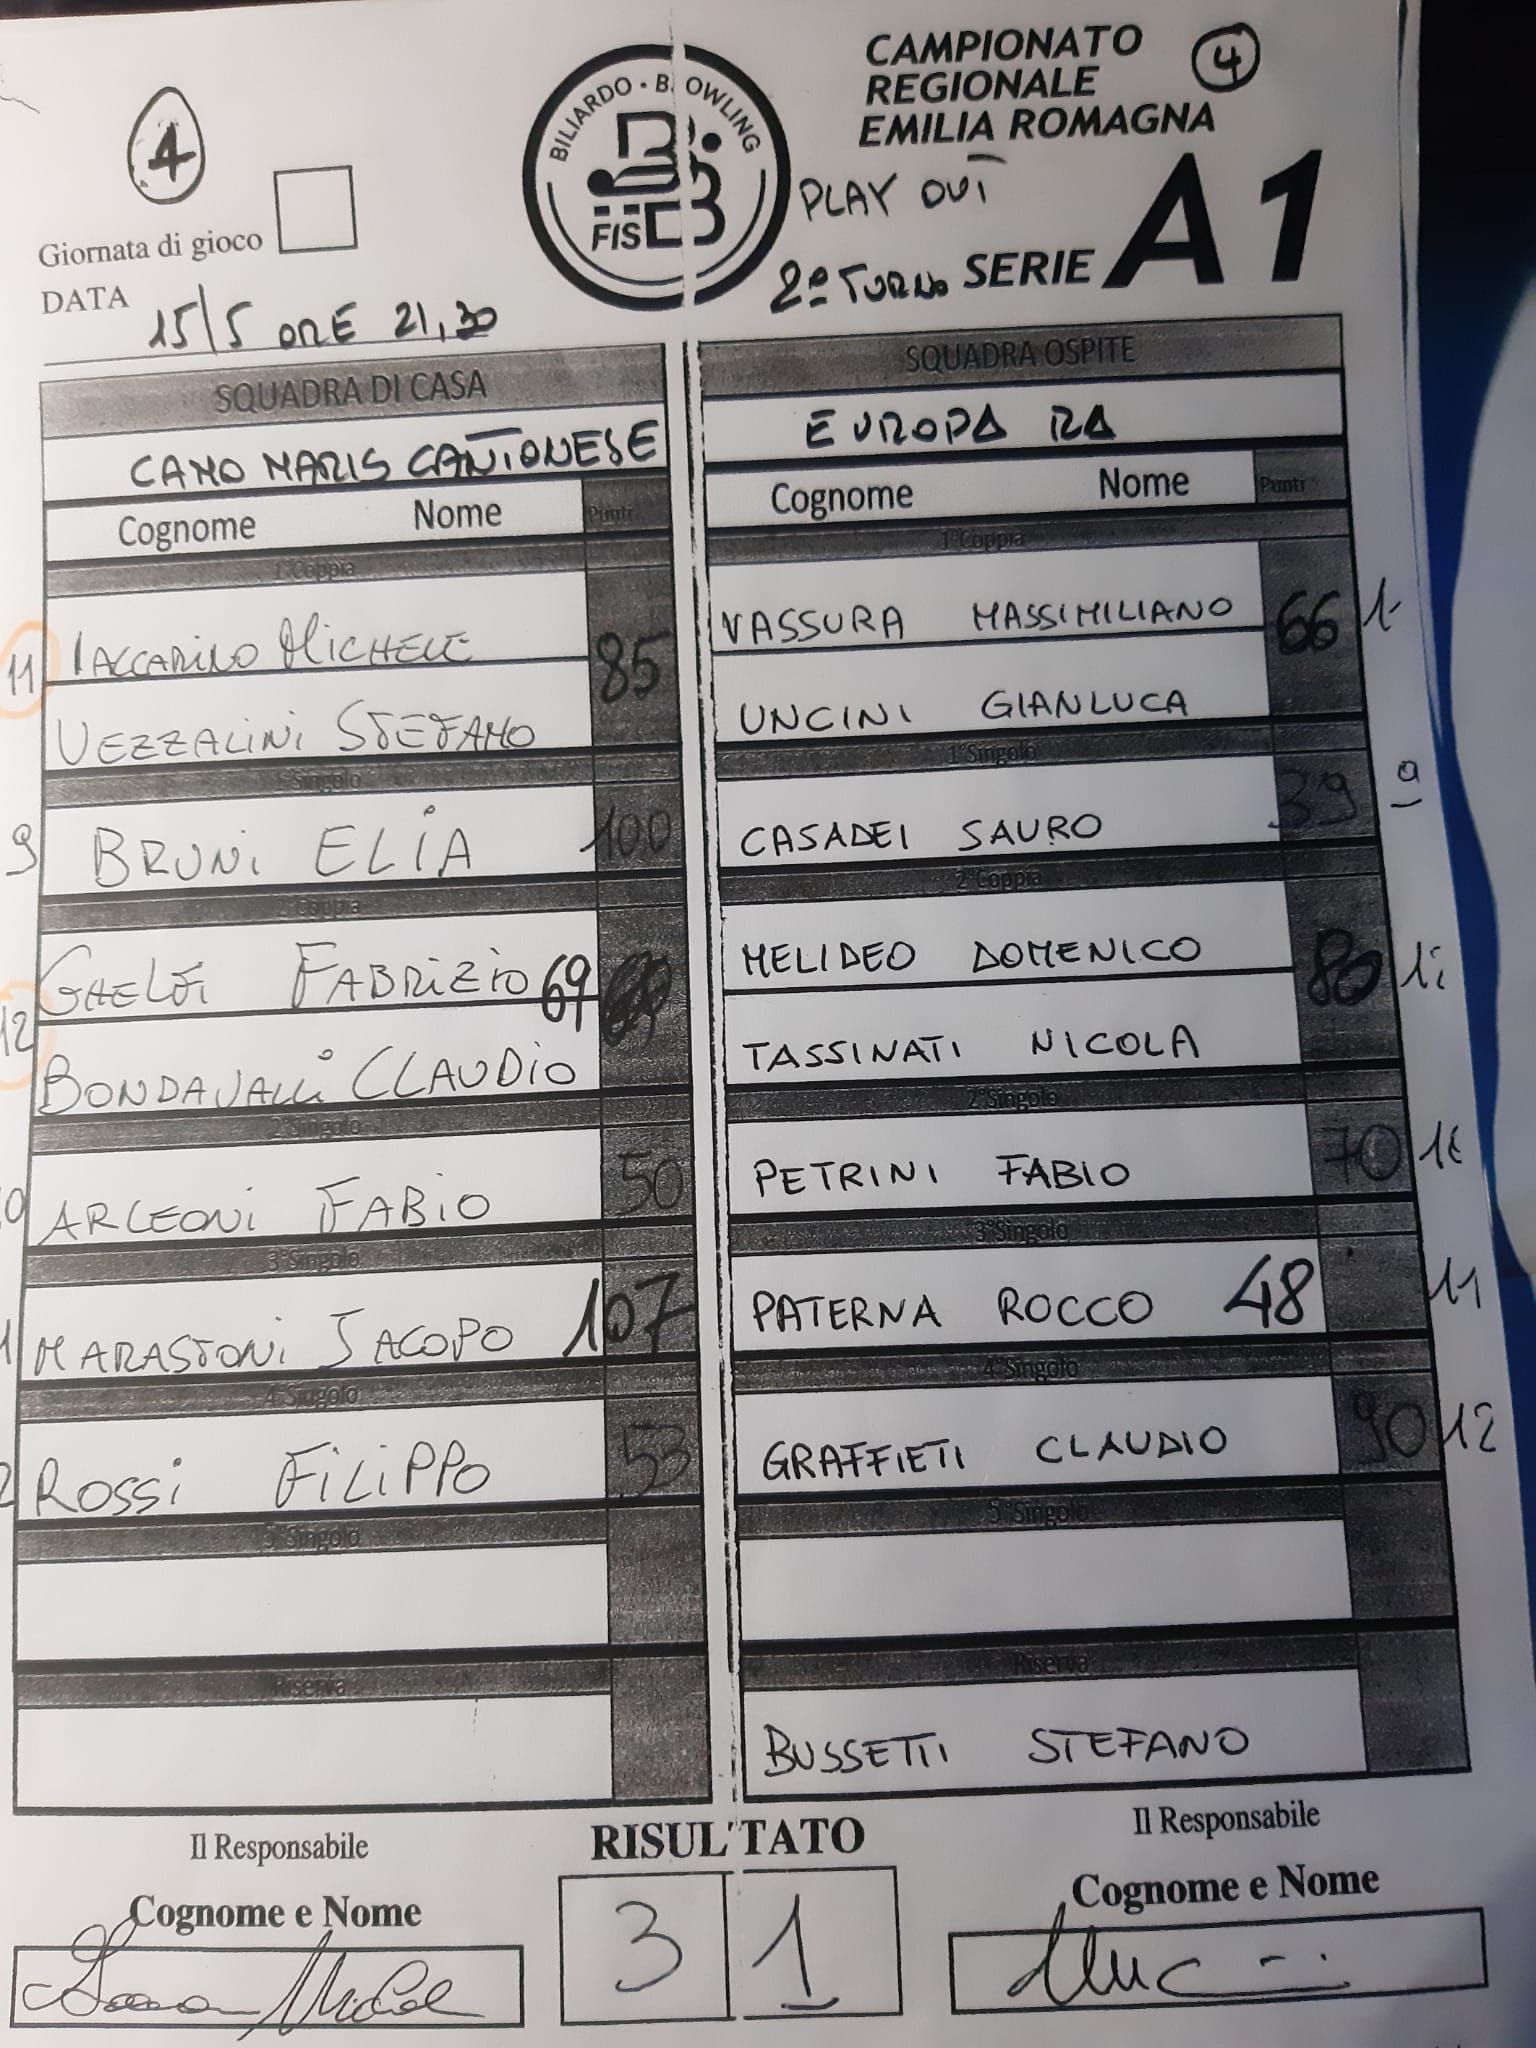 4
Giornata di gioco
DATA 15/5 ORE 21,30
BILIARDO · BOWLING
FIS
CAMPIONATO
REGIONALE
EMILIA ROMAGNA
4
PLAY OUT
2º TURNO SERIE A1
SQUADRA DI CASA
CAMO MARIS CANTONESE
Cognome Nome Punti
1°Coppia
11 IACCARINO MICHELE 85
VEZZALINI STEFANO
1°Singolo
9 BRUNI ELIA 100
2°Coppia
GHELFI FABRIZIO 69
12 BONDAVALLI CLAUDIO
2°Singolo
ARLEONI FABIO 50
3°Singolo
MARASTONI JACOPO 107
4°Singolo
ROSSI FILIPPO 53
5°Singolo
Riserva
SQUADRA OSPITE
EUROPA RA
Cognome Nome Punti
1°Coppia
VASSURA MASSIMILIANO 66
UNCINI GIANLUCA
1°Singolo
CASADEI SAURO 39
2°Coppia
MELIDEO DOMENICO 80
TASSINATI NICOLA
2°Singolo
PETRINI FABIO 70
3°Singolo
PATERNA ROCCO 48 11
4°Singolo
GRAFFIETI CLAUDIO 90 12
5°Singolo
Riserva
BUSSETTI STEFANO
Il Responsabile
Cognome e Nome
RISULTATO
3 1
Il Responsabile
Cognome e Nome